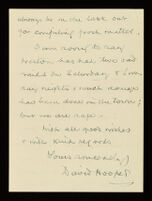 always be on the look out
for compelling good matter.
I am sorry to say
Weston has had two bad
raids on Saturday & Sun-
day nights & much damage
has been done in the town;
but we are safe.
With all good wishes
& with kind regards
Yours sincerely,
David Hooper